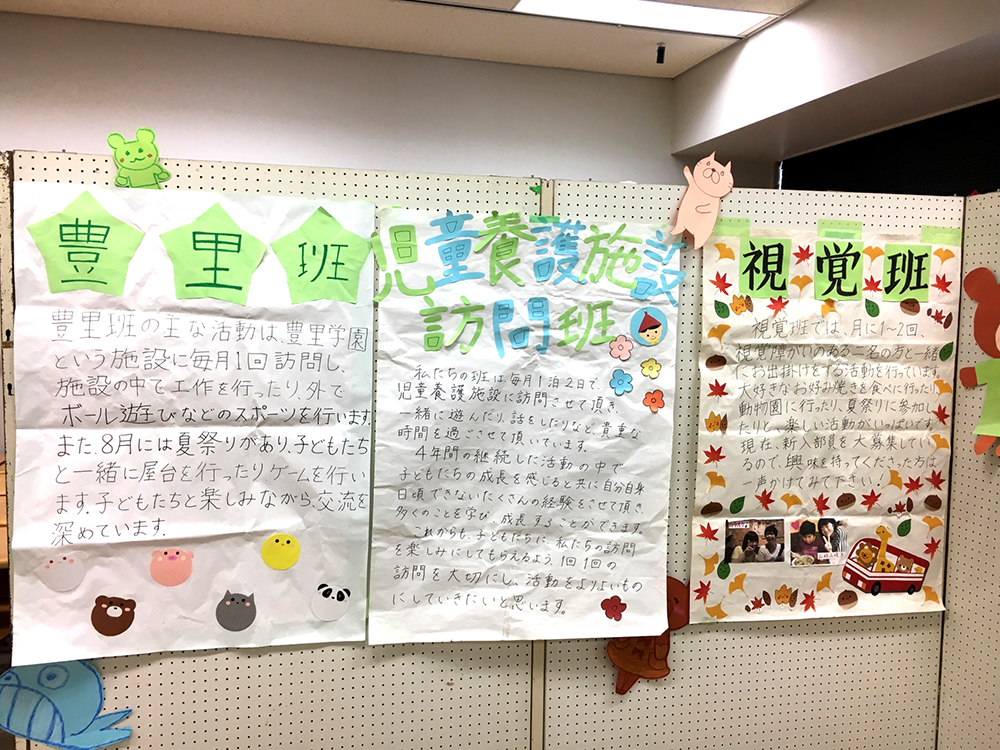 豊里班
豊里班の主な活動は、豊里学園
という施設に毎月1回訪問し、
施設の中で工作を行ったり、外で
ボール遊びなどのスポーツを行います。
また、8月には夏祭りがあり、子どもたち
と一緒に屋台を行ったりゲームを行い
ます。子どもたちと楽しみながら、交流を
深めています。
児童養護施設
訪問班
私たちの班は毎月1泊2日で、
児童養護施設に訪問させて頂き、
一緒に遊んだり、話をしたりなど、貴重な
時間を過ごさせて頂いています。
4年間の継続した活動の中で
子どもたちの成長を感じると共に自分自身
日頃できないたくさんの経験をさせて頂き
多くのことを学び、成長することができます。
これからも、子どもたちに、私たちの訪問
を楽しみにしてもらえるよう、1回1回の
訪問を大切にし、活動をよりよいもの
にしていきたいと思います。
視覚班
視覚班では、月に1〜2回、
視覚障がいのある二名の方と一緒
にお出掛けをする活動を行っています。
大好きなお好み焼きを食べに行ったり、
動物園に行ったり、夏祭りに参加し
たりと、楽しい活動がいっぱいです。
現在、新入部員を大募集してい
るので、興味を持ってくださった方は
一声かけてみて下さい!